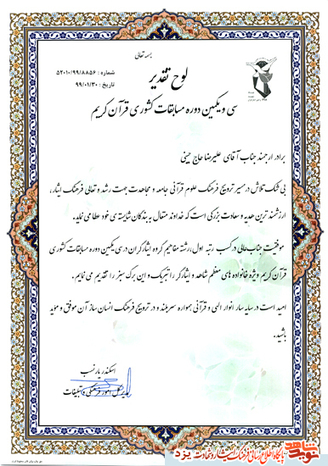 بسمه تعالی
لوح تقدیر
شماره : ۵۲۰۱۰/۹۹/۸۸۵۶
تاریخ : ۹۹/۰۱/۳۰
سی و یکمین دوره مسابقات کشوری قرآن کریم
برادر ارجمند جناب آقای علیرضا حاج حسینی
بی شک تلاش در مسیر ترویج فرهنگ علوم قرآنی جامعه و مجاهدت بجهت رشد و تعالی فرهنگ ایثار،
ارزشمندترین هدیه و سعادت بزرگی است که خداوند متعال به بندگان شایسته ی خود عطا می نماید.
موفقیت جنابعالی در کسب رتبه اولی رشته مفاهیم گروه ایثارگران در سی و یکمین دوره مسابقات کشوری
قرآن کریم ویژه خانواده های معظم شاهد و ایثارگر را تبریک و این برگ سبز را تقدیم می نمایم.
امید است در سایه سار انوار الهی و قرآنی همواره سربلند و در ترویج فرهنگ انسان ساز آن موفق و موید
باشید.